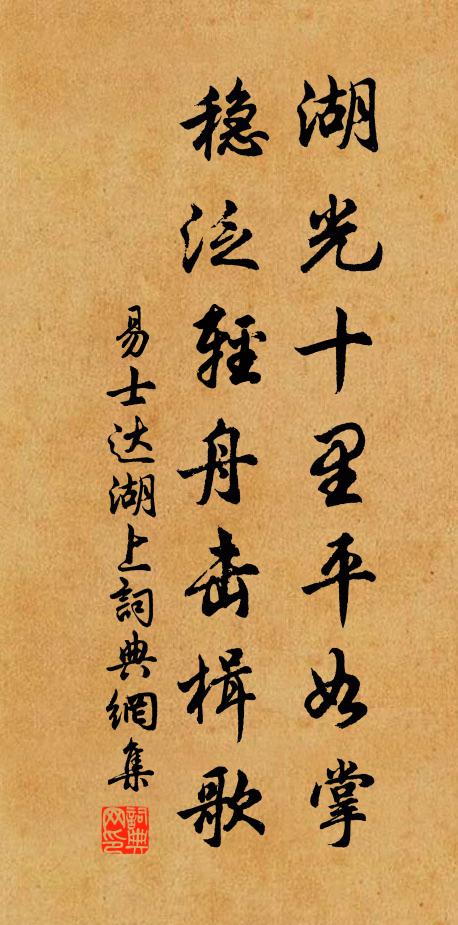 湖光十里平如掌
稳泛輕舟击楫歌
易士达湖上詞典網集
詞典网印